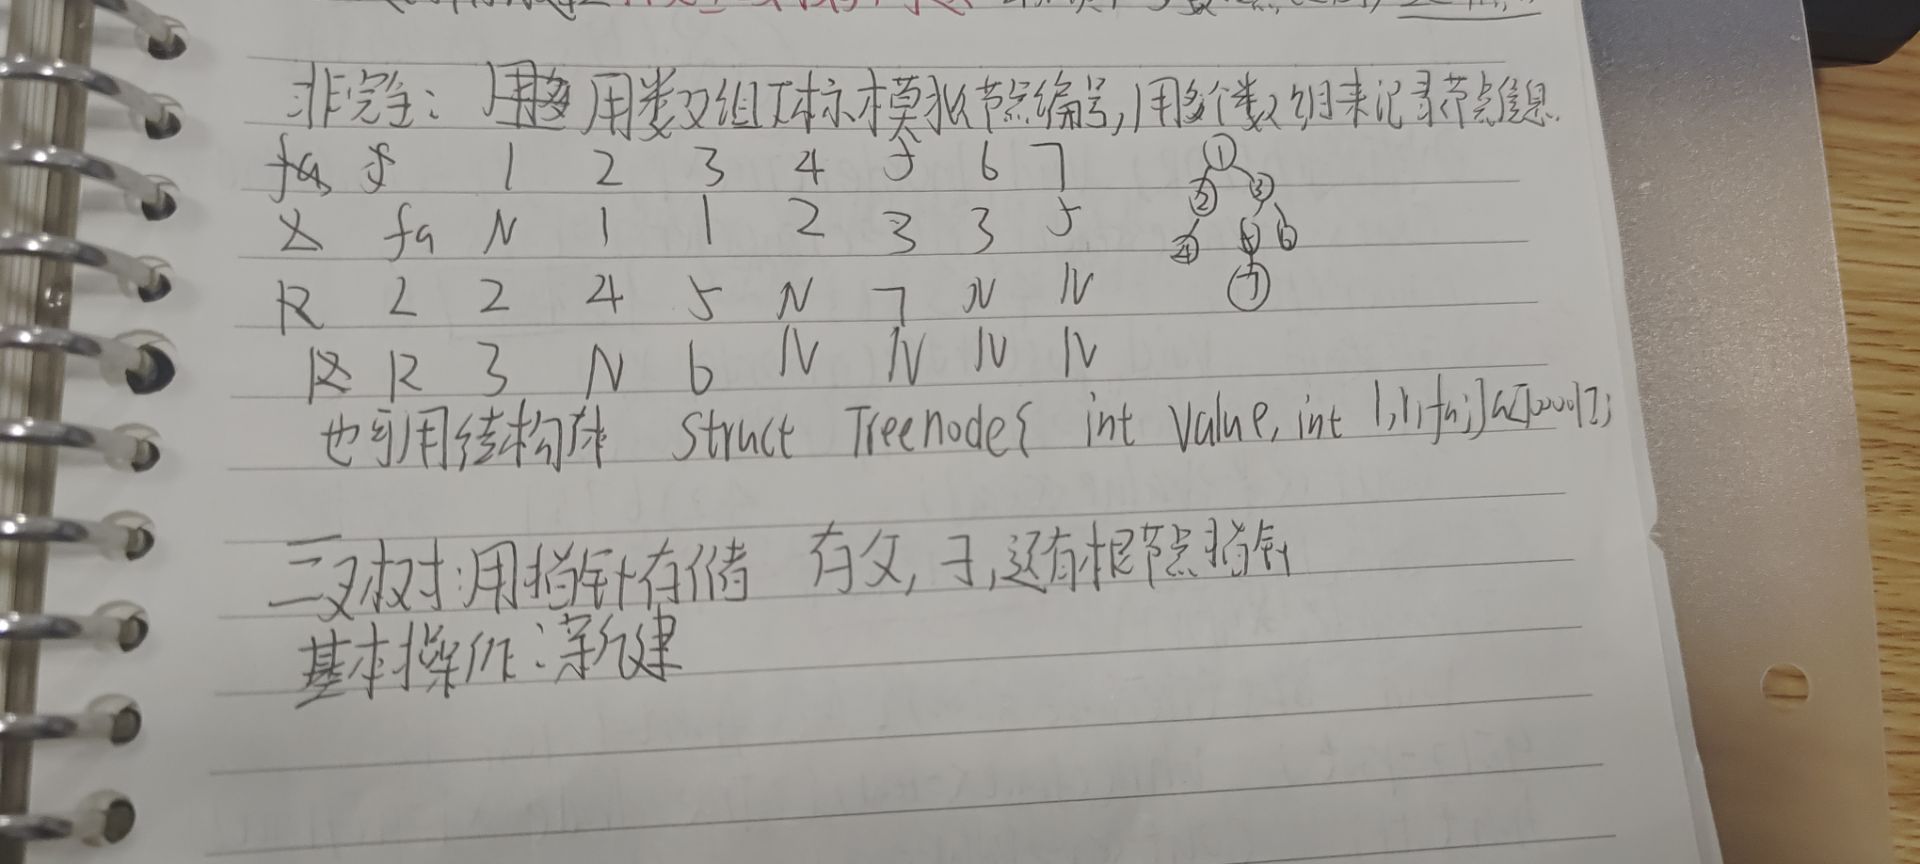 非完全：用数组下标模拟节点编号，用多个数组来记录节点信息.
fa 1 2 3 4 5 6 7
fa N 1 1 2 3 3 5
R L 2 4 5 N 7 N N
R R 3 N 6 N N N N
1
2 3
4 5 6
7
也可用结构体 struct Treenode{ int value, int l,r,fa;}a[10001];
三叉树：用指针存储 有父，子，还有根节点指针
基本操作：新建